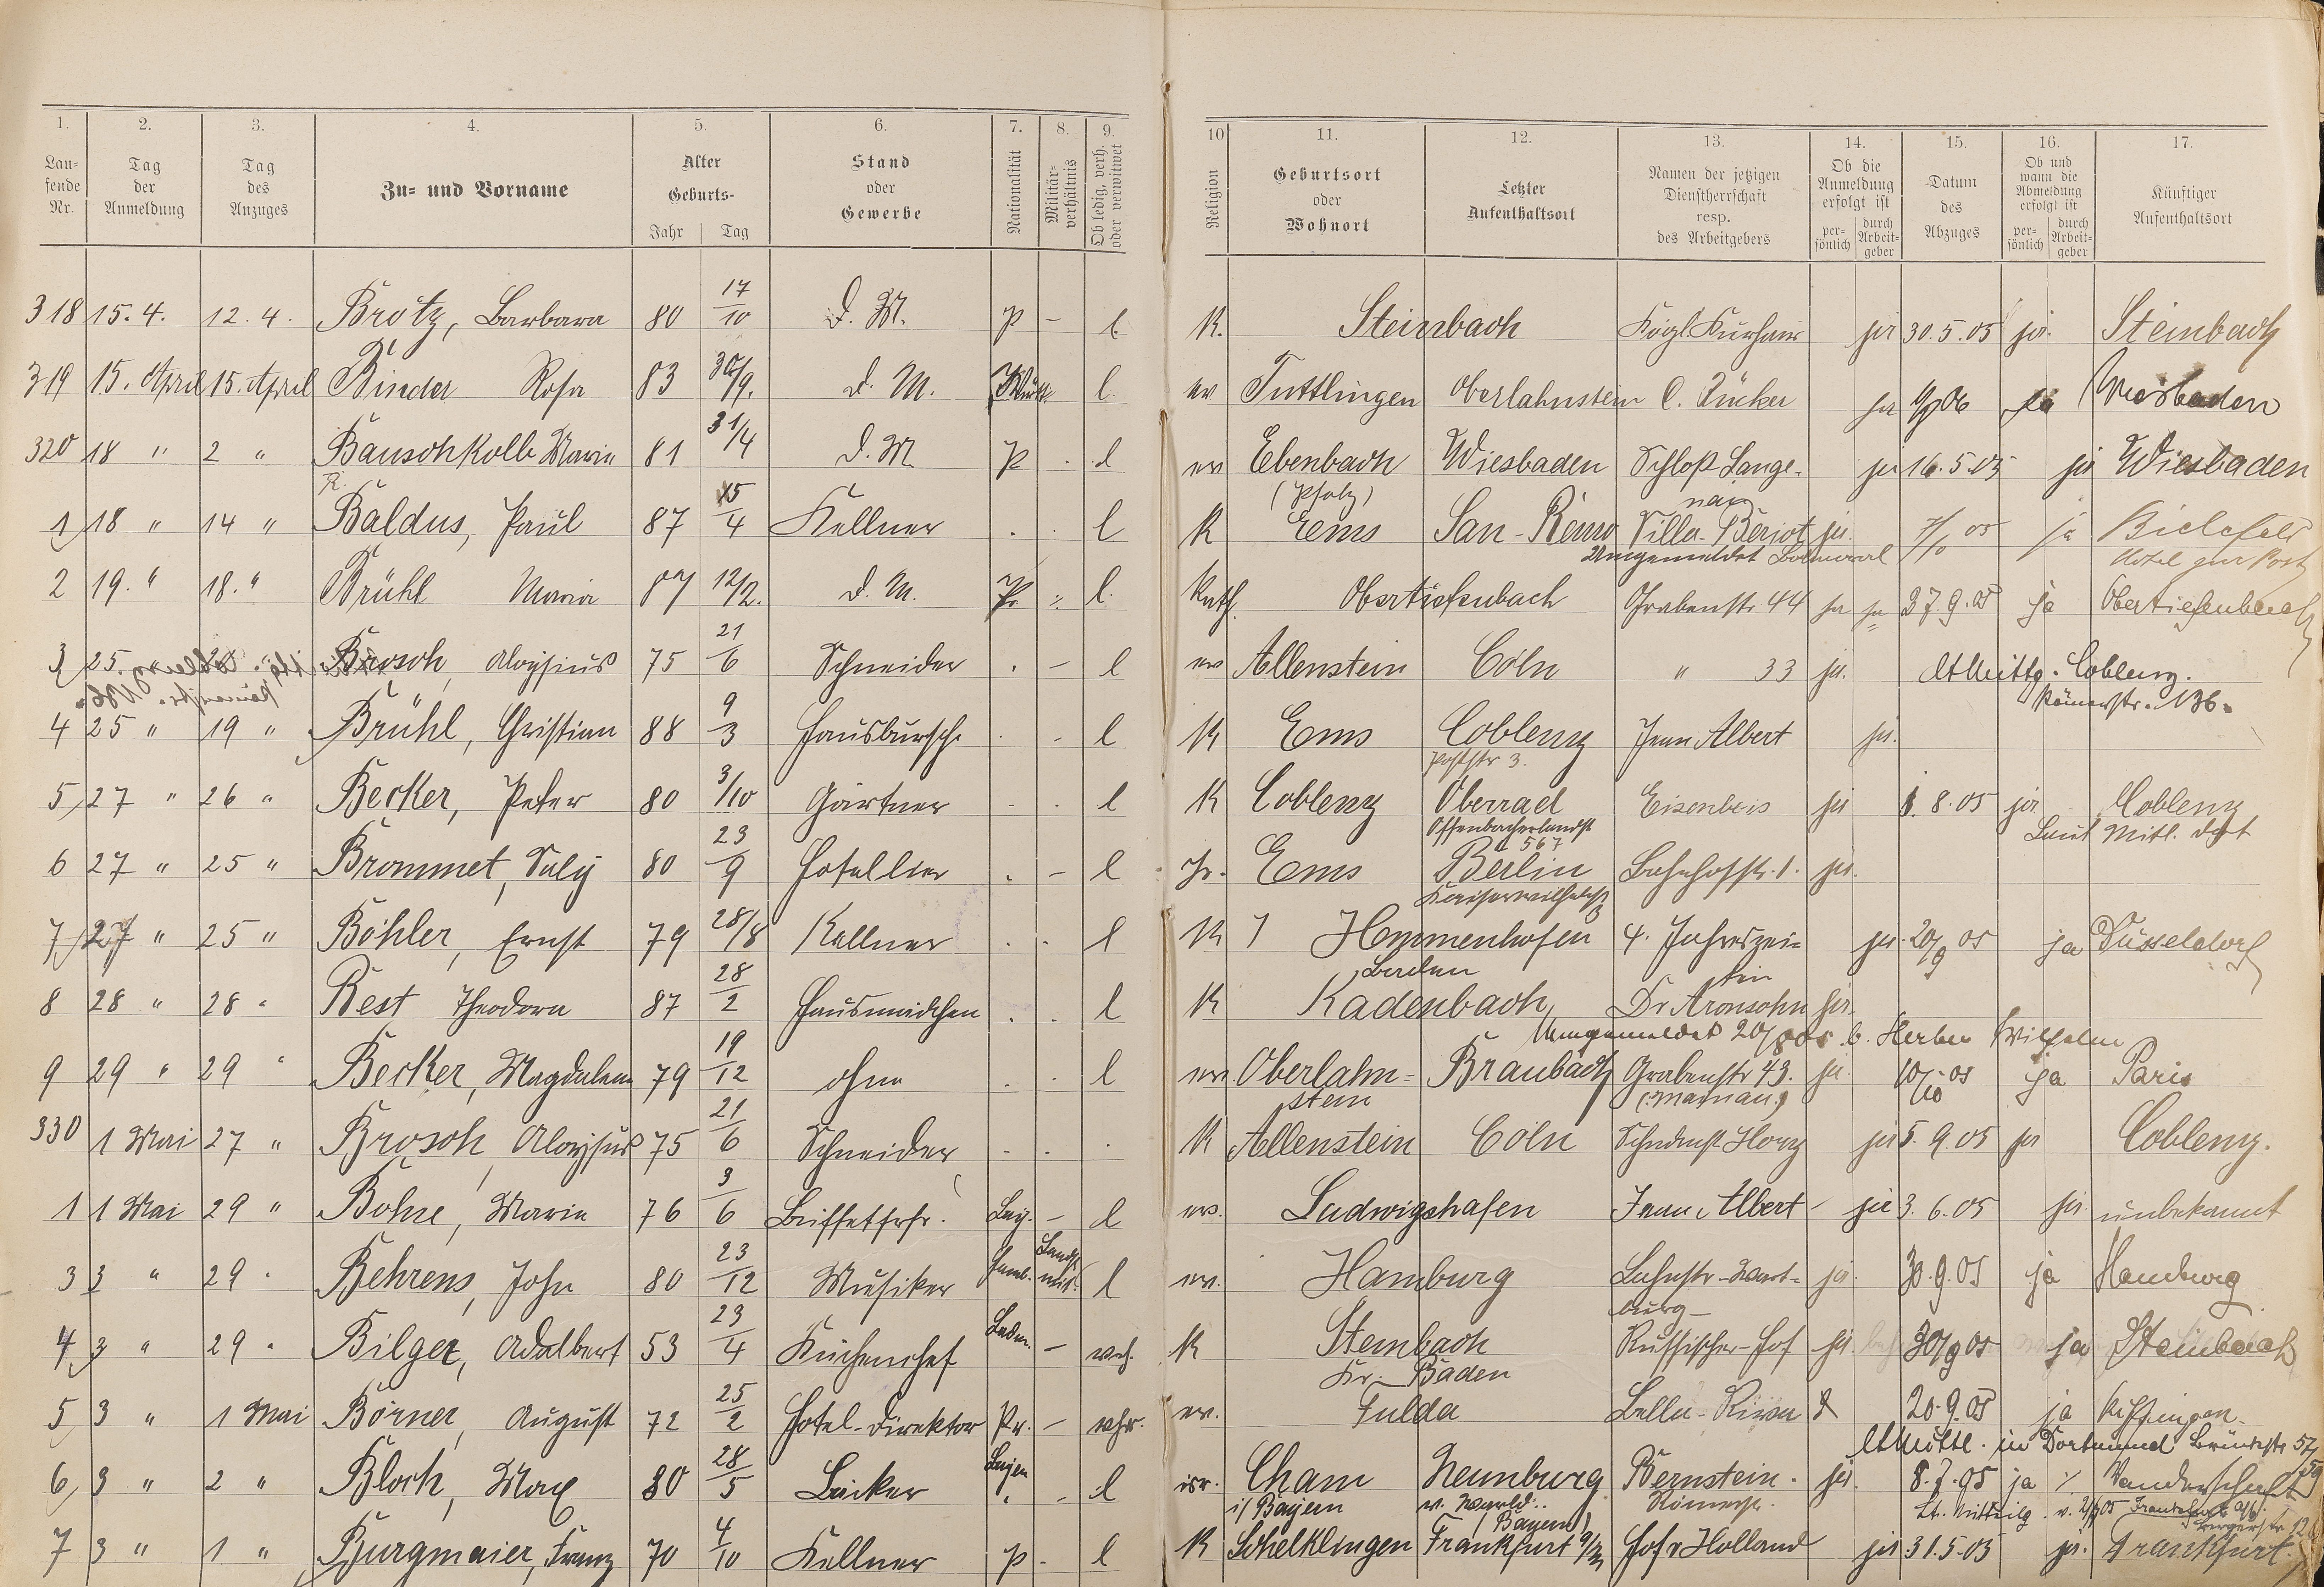 1. 2. 3. 4. 5. 6. 7. 8. 9. 10 11. 12. 13. 14. 15. 16. 17.
Lau-
fende
Nr.
Tag
der
Anmeldung
Tag
des
Anzuges
Zu- und Vorname
Alter
Geburts-
Jahr Tag
Stand
oder
Gewerbe
Nationalität
Militär-
verhältnis
Ob ledig, verh.
oder verwitwet
Religion
Geburtsort
oder
Wohnort
Letzter
Aufenthaltsort
Namen der jetzigen
Dienstherrschaft
resp.
des Arbeitgebers
Ob die
Anmeldung
erfolgt ist
per-
sönlich
durch
Arbeit-
geber
Datum
des
Abzuges
Ob und
wann die
Abmeldung
erfolgt ist
per-
sönlich
durch
Arbeit-
geber
Künftiger
Aufenthaltsort
318 15. 4. 12. 4. Brötz, Barbara 80 17/10 d. M. P - l. K. Steinbach Kögl. Kurhaus ja 30. 5. 05 ja. Steinbach
319 15. April 15. April Binder Rosa 83 30/9. d. M. Württ. l ev Tuttlingen Oberlahnstein C. Rücker ja ja Wiesbaden
320 18 " 2 " Bauschkolb Maria 81 31/4 d. M P . l ev Ebenbach Wiesbaden Schloß Lange- ja 16. 5. 05 ja Wiesbaden
(Pfalz) nau
1 18 " 14 " Baldus, Paul 87 15/4 Kellner . l K Ems San-Remo Villa-Beriot ja. 05 ja Bielefeld
Umgemeldet Hotel zur Post
2 19. " 18. " Brühl Maria 87 12/2. d. M. Pr. l. Kath. Obertiefenbach Grabenstr 44 ja ja 27. 9. 05 ja Obertiefenbach
3 25. 20 Brosch, Aloysius 75 21/6 Schneider . - l ev Allenstein Cöln " 33 ja. lt Mittg. Coblenz.
Römerstr. 136.
4 25 " 19 " Brühl, Christian 88 9/3 Hausbursche . - l K Ems Coblenz Jean Albert ja.
Poststr 3.
5 27 " 26 " Becker, Peter 80 3/10 Gärtner . . l K Coblenz Oberrad Eisenbeis ja 1. 8. 05 ja Coblenz
Offenbacherlandst 567 Laut Mitl. dort
6 27 " 25 " Brommet, Saly 80 23/9 Hotellier . - l Isr. Ems Berlin Bahnhofstr. 1. ja.
Kaiserwilhelmstr
7 27 " 25 " Böhler, Ernst 79 28/8 Kellner . . l K Hemmenhofen 4. Jahreszei- ja 20/9 05 ja Düsseldorf
Baden ten
8 28 " 28 " Best Theodora 87 28/2 Hausmädchen . . l K Kadenbach, Dr Aronsohn ja.
Umgemeldet 20/8 05 b. Herber Wilhelm
9 29 " 29 " Becker, Magdalena 79 19/12 ohne . . l ev. Oberlahn- Braubach Grabenstr 43. ja. 10/10 05 ja Paris
stein
330 1 Mai 27 " Brosch, Aloysius 75 21/6 Schneider . . . K Allenstein Cöln Schndmst Horz ja 5. 9. 05 ja Coblenz.
1 1 Mai 29 " Bohne, Maria 76 3/6 Büffetfrl. Bay. - l ev. Ludwigshafen Jean Albert ja 3. 6. 05 ja. unbekannt
3 3 " 29 " Behrens, John 80 23/12 Musiker Hamb. l ev. Hamburg Lahnstr-Wart- ja. 30. 9. 05 ja Hamburg
burg
4 3 " 29 " Bilger, Adalbert 53 23/4 Küchenchef Baden. - verh. K Steinbach Russischer-Hof ja. 30/9 05 ja Steinbach
Kr. Baden
5 3 " 1 Mai Börner, August 72 25/2 Hotel-Direktor Pr. - ev. Fulda Bella-Riva 20. 9. 05 ja Kissingen.
lt Mittl. in Dortmund Brückstr 57/59
6 3 " 2 " Bloch, Max 80 28/5 Bäcker Bayern - l isr. Cham Neunburg Bernstein. ja. 8. 7. 05 ja Wanderschaft
i/ Bayern v. Wald. Bayern) Römerstr. Lt. Mitteilg. v.
7 3 " 1 " Burgmaier, Franz 70 4/10 Kellner P - l K Schelklingen Frankfurt a/M Hof v Holland ja 31. 5. 05 ja. Frankfurt.